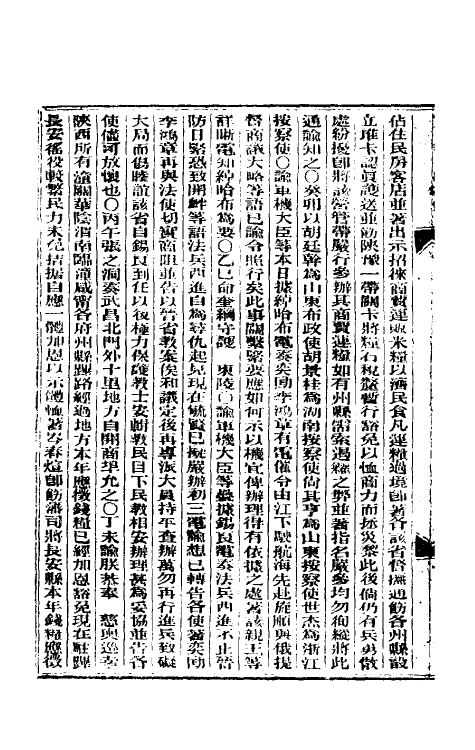 佔住民房客店並著出示招徠商賈運販米糧以濟民食凡運糧過境即著各該省督撫通飭各州縣設
立堆卡認眞護送並飭陝懷一帶關卡將糧石稅釐暫行豁免以恤商力而拯災黎此後倘仍有兵勇散
處紛擾卽將該營管帶嚴行參辦其商賈運糧如有州縣需索遏糴之弊並著指名嚴參均勿徇縱將此
通諭知之○癸卯以胡廷幹爲山東布政使胡景桂爲湖南按察使尚其亨爲山東按察使世杰爲浙江
按察使○諭軍機大臣等本日據綽哈布電奏奕劻李鴻章有電催令由江下駛航海先赴旅順與俄提
督商議大略等語已諭令照行矣此事關繫緊要應如何示以機宜俾辦理得有依據之處著該親王等
詳晰電知綽哈布爲要○乙巳命奎綱守護 東陵○諭軍機大臣等據錫良電奏法兵西進不止晉
防日緊恐致開衅等語法兵西進自爲尋仇起見現在毓賢已擬嚴辦初三電諭想已轉告各使著奕劻
李鴻章再與法使切實商阻並告以晉省教案俟和議定後再專派大員持平查辦萬勿再行進兵致礙
大局而傷睦誼該省自錫良到任以後極力保護教士安輯教民目下民教相安辦理甚爲妥協並告各
使儘可放懷也○丙午張之洞奏武昌北門外十里地方自開商埠允之○丁未諭朕恭奉 慈輿巡幸
陝西所有潼關華陰渭南臨潼咸甯各府州縣蹕路經過地方本年應徵錢糧已經加恩豁免現在駐蹕
長安徭役較繁民力未免拮据自應一體加恩以示體恤著岑春煊卽飭藩司將長安縣本年錢糧應徵